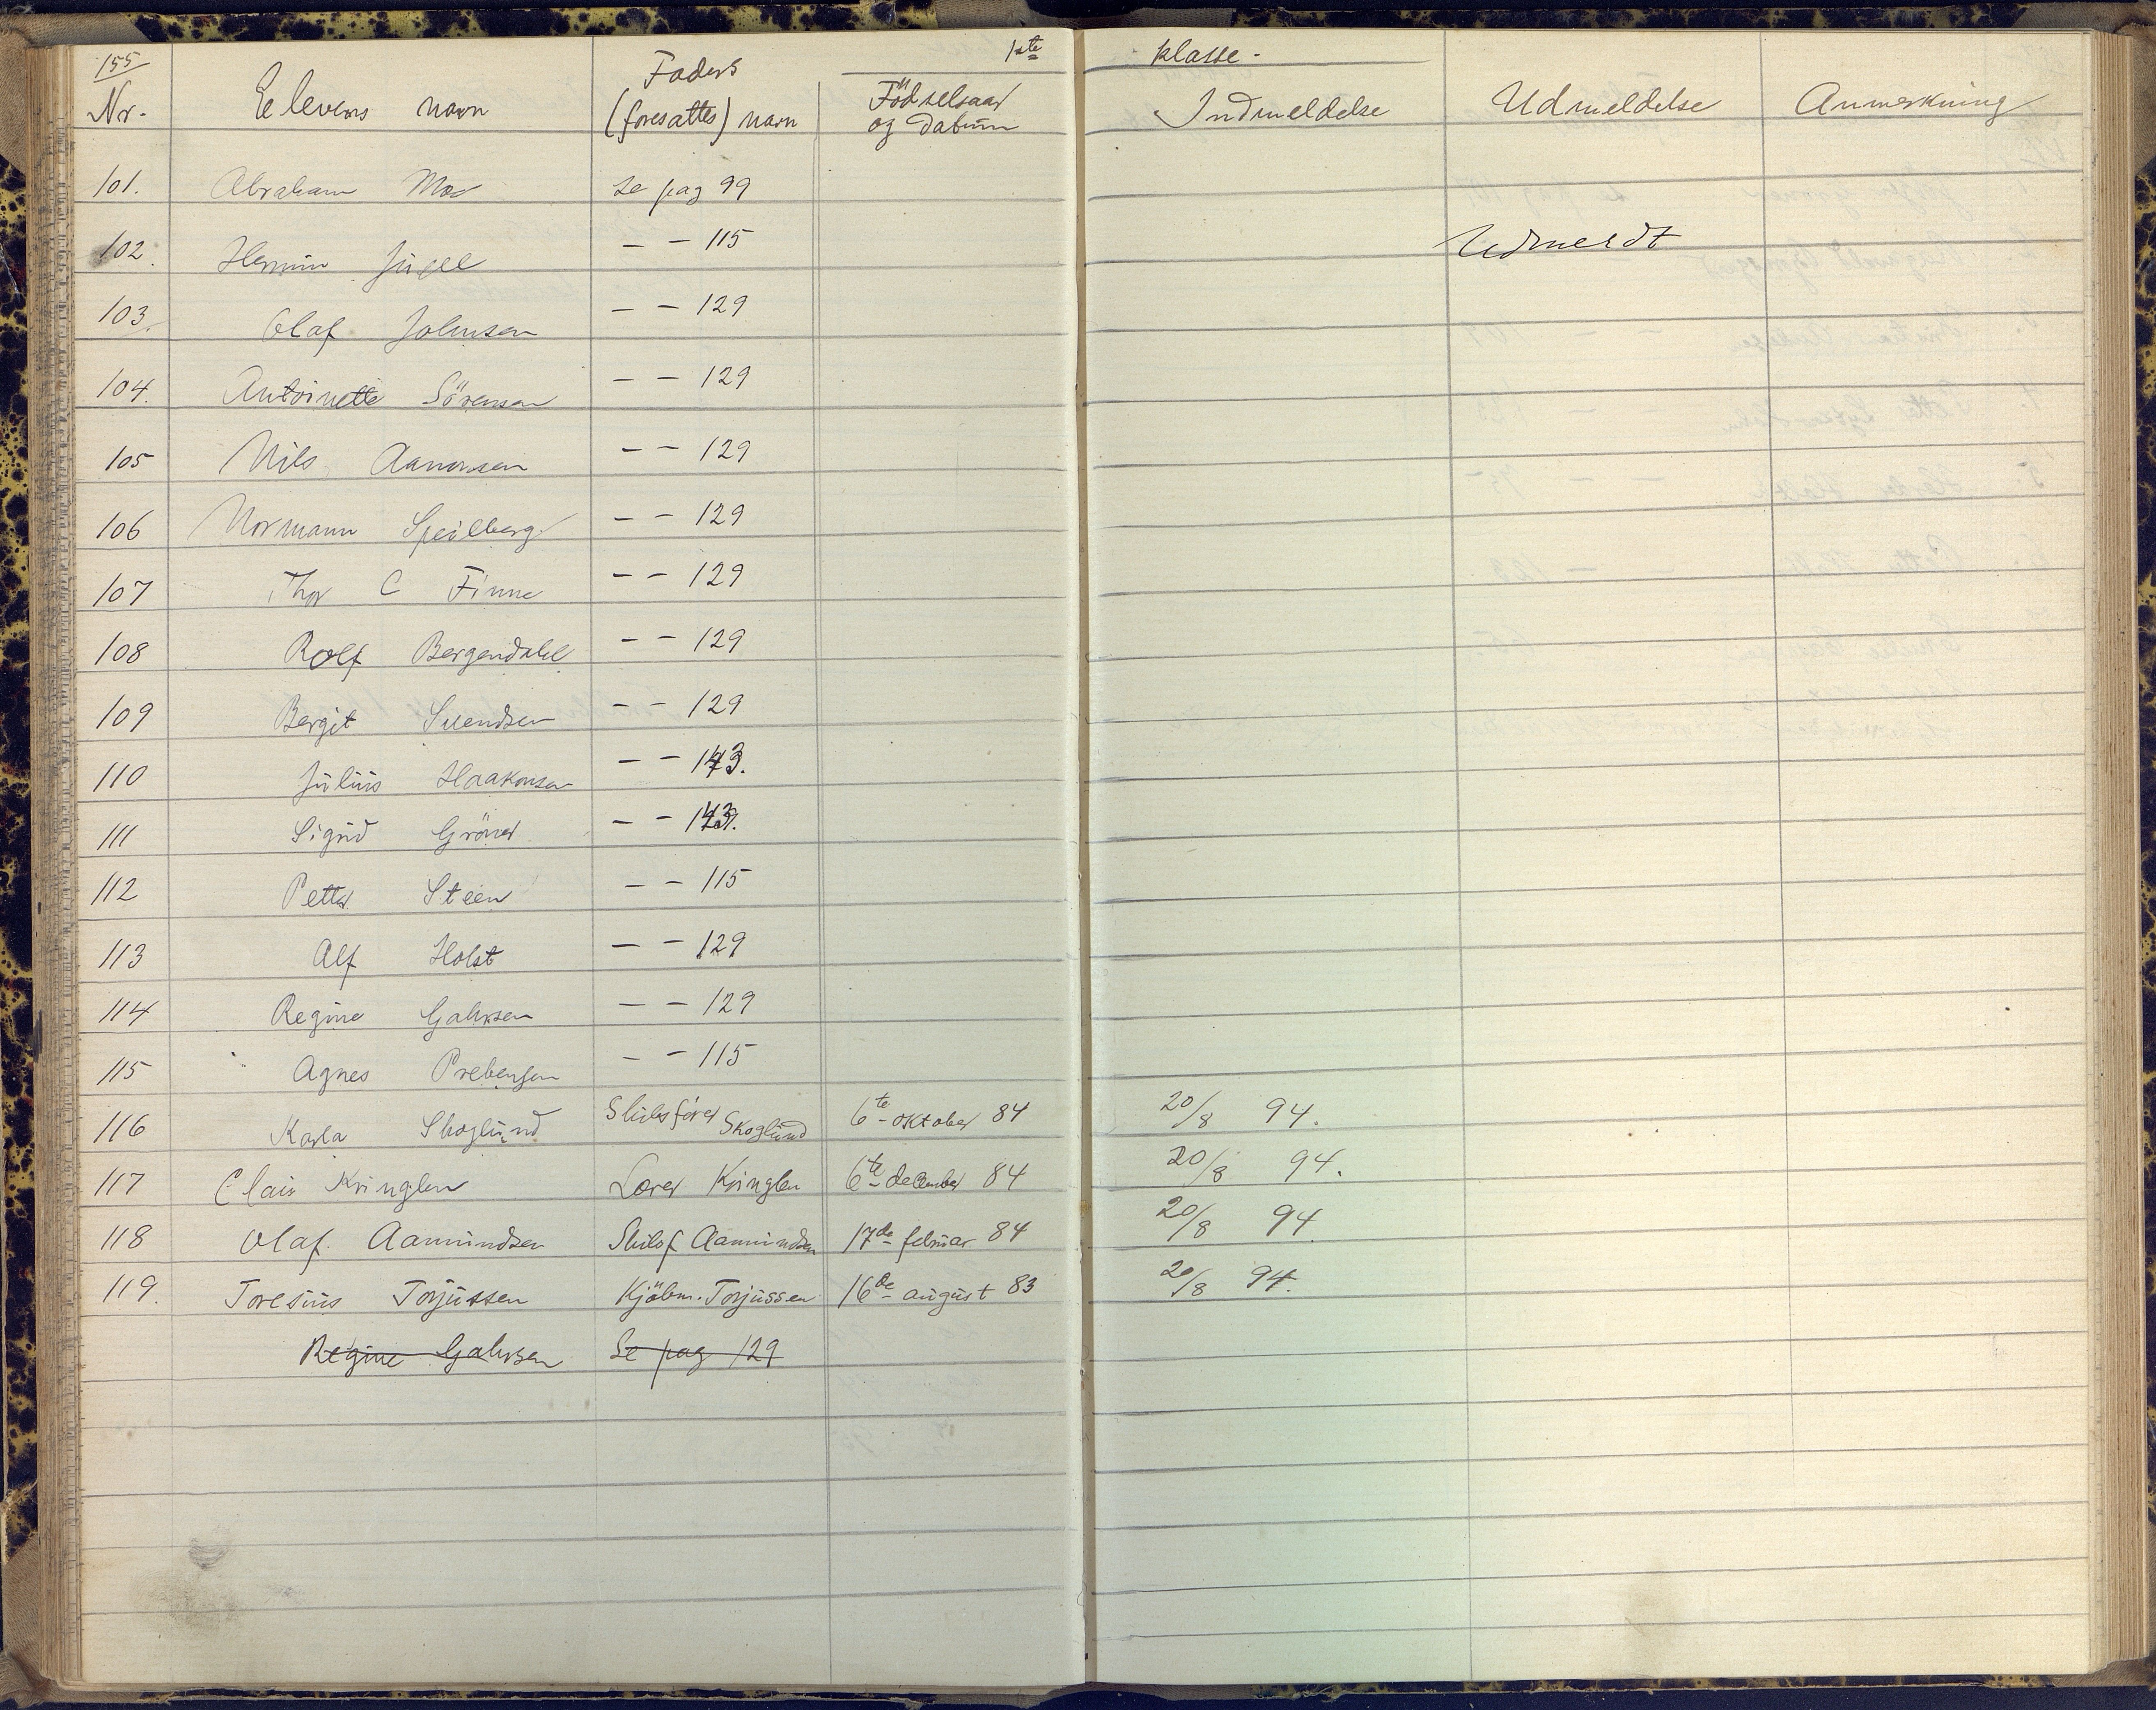 155 1ste klasse.
Nr. Elevens navn Faders (foresattes) navn Födselsaar og datum Indmeldelse Udmeldelse Anmerkning
101. Abraham Moe se pag 99
102. Hermin Jügel — — 115 Udmeldt
103. Olaf Johnsen — — 129
104. Antoinette Sörensen — — 129
105 Nils Aanonsen — — 129
106 Normann Speilberg — — 129
107 Thor C Finne — — 129
108 Rolf Bergendahl — — 129
109 Bergit Svendsen — — 129
110 Julius Haakonsen — — 143.
111 Sigrid Gröner — — 143.
112 Petter Steen — — 115
113 Alf Holst — — 129
114 Regine Gahrsen — — 129
115 Agnes Prebensen — — 115
116 Karla Skoglund Skibsförer Skoglund 6te oktober 84 20/8 94.
117 Claus Kringlen Lærer Kringlen 6te december 84 20/8 94.
118 Olaf Aamundsen Skibsf Aamundsen 17de februar 84 20/8 94.
119. Toresius Torjussen Kjöbm. Torjussen 16de august 83 20/8 94.
Regine Gahrsen Se pag 129